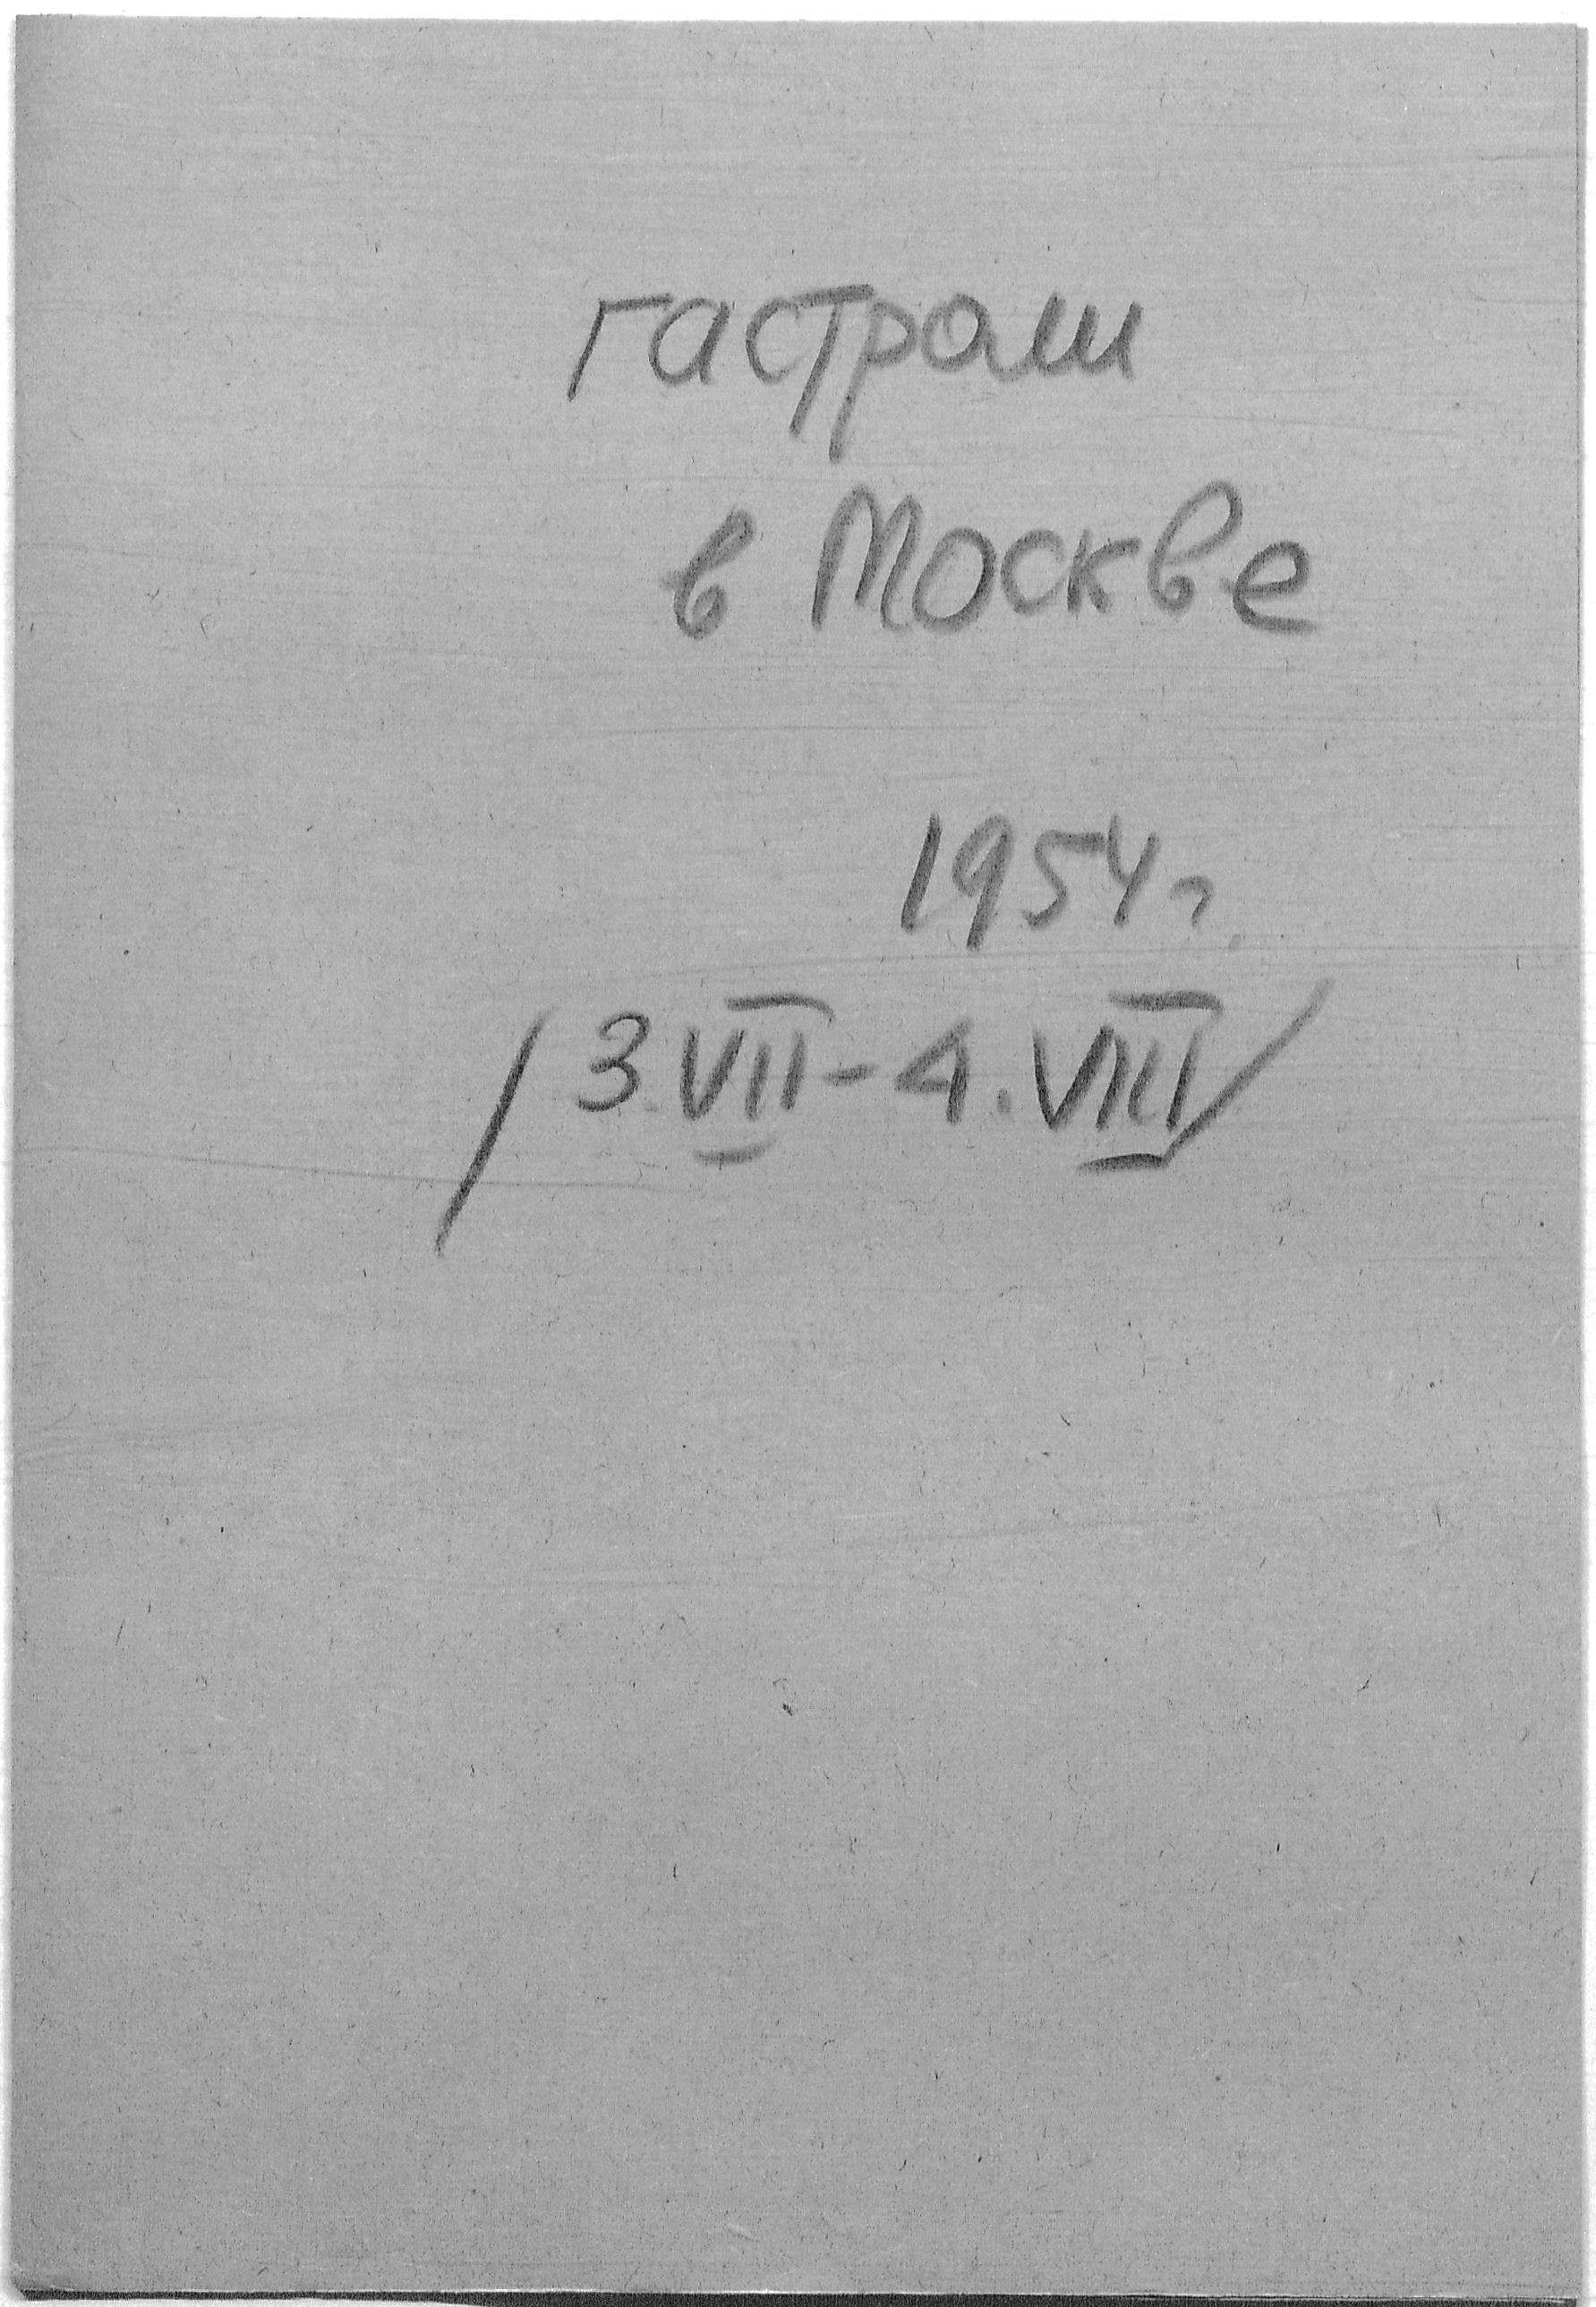 гастроли
в Москве
1954 г.
/3.VII - 4.VIII/